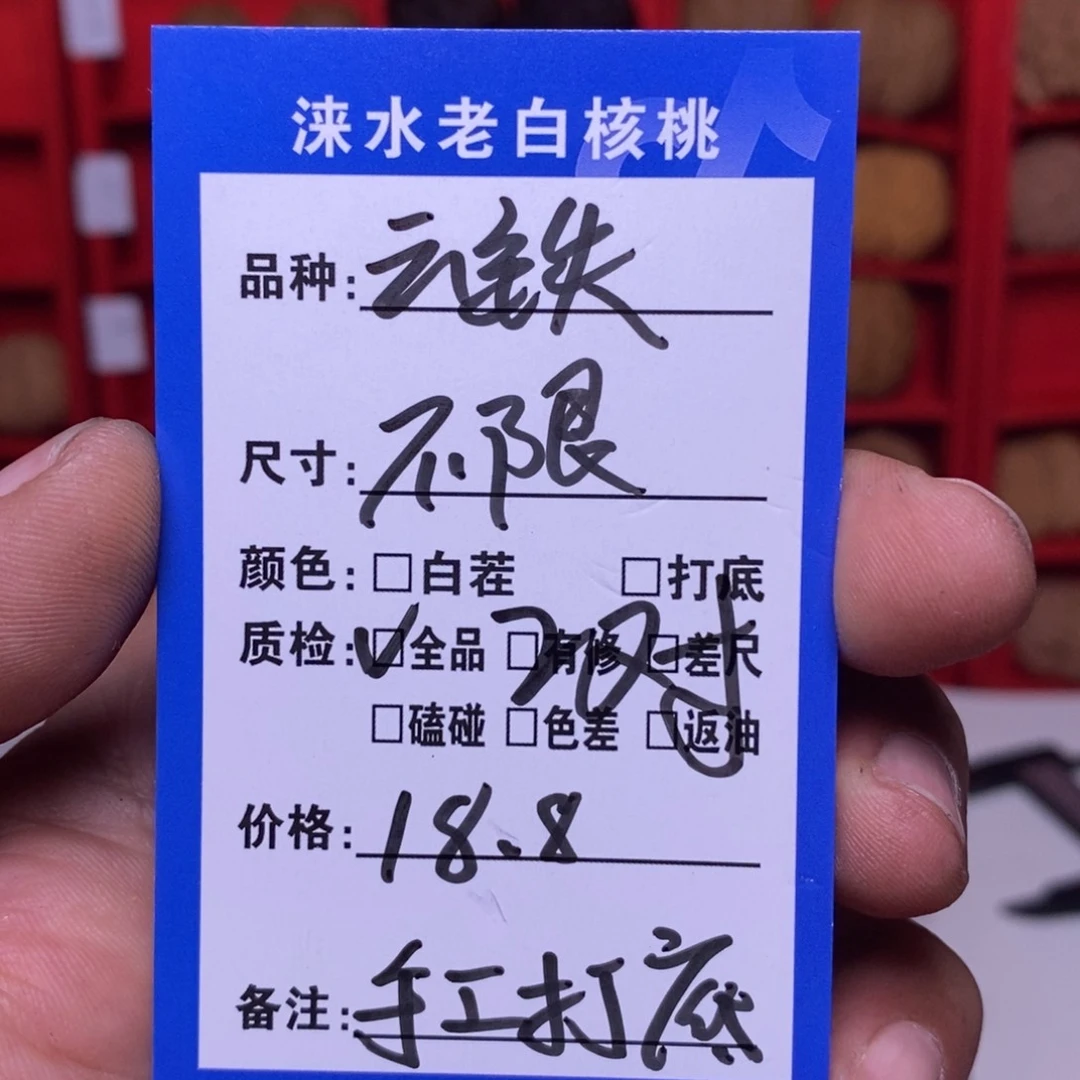 涞水老白核桃
品种:云铁
尺寸:不限
颜色:□白茬 □打底
质检:✓□全品 □有修 □差尺
对
□磕碰 □色差 □返油
价格:18.8
备注:手工打底